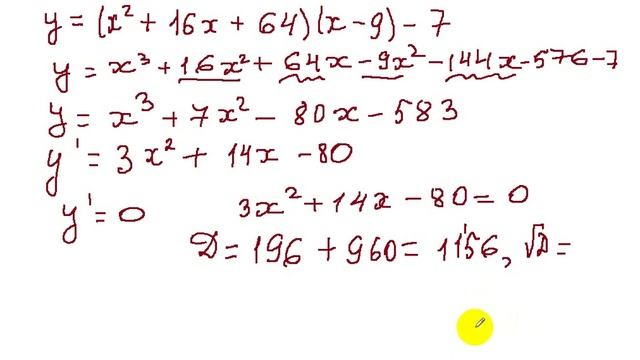 y = (x² + 16x + 64)(x - 9) - 7
y = x³ + 16x² + 64x - 9x² - 144x - 576 - 7
y = x³ + 7x² - 80x - 583
y' = 3x² + 14x - 80
y' = 0 3x² + 14x - 80 = 0
D = 196 + 960 = 1156, √D =